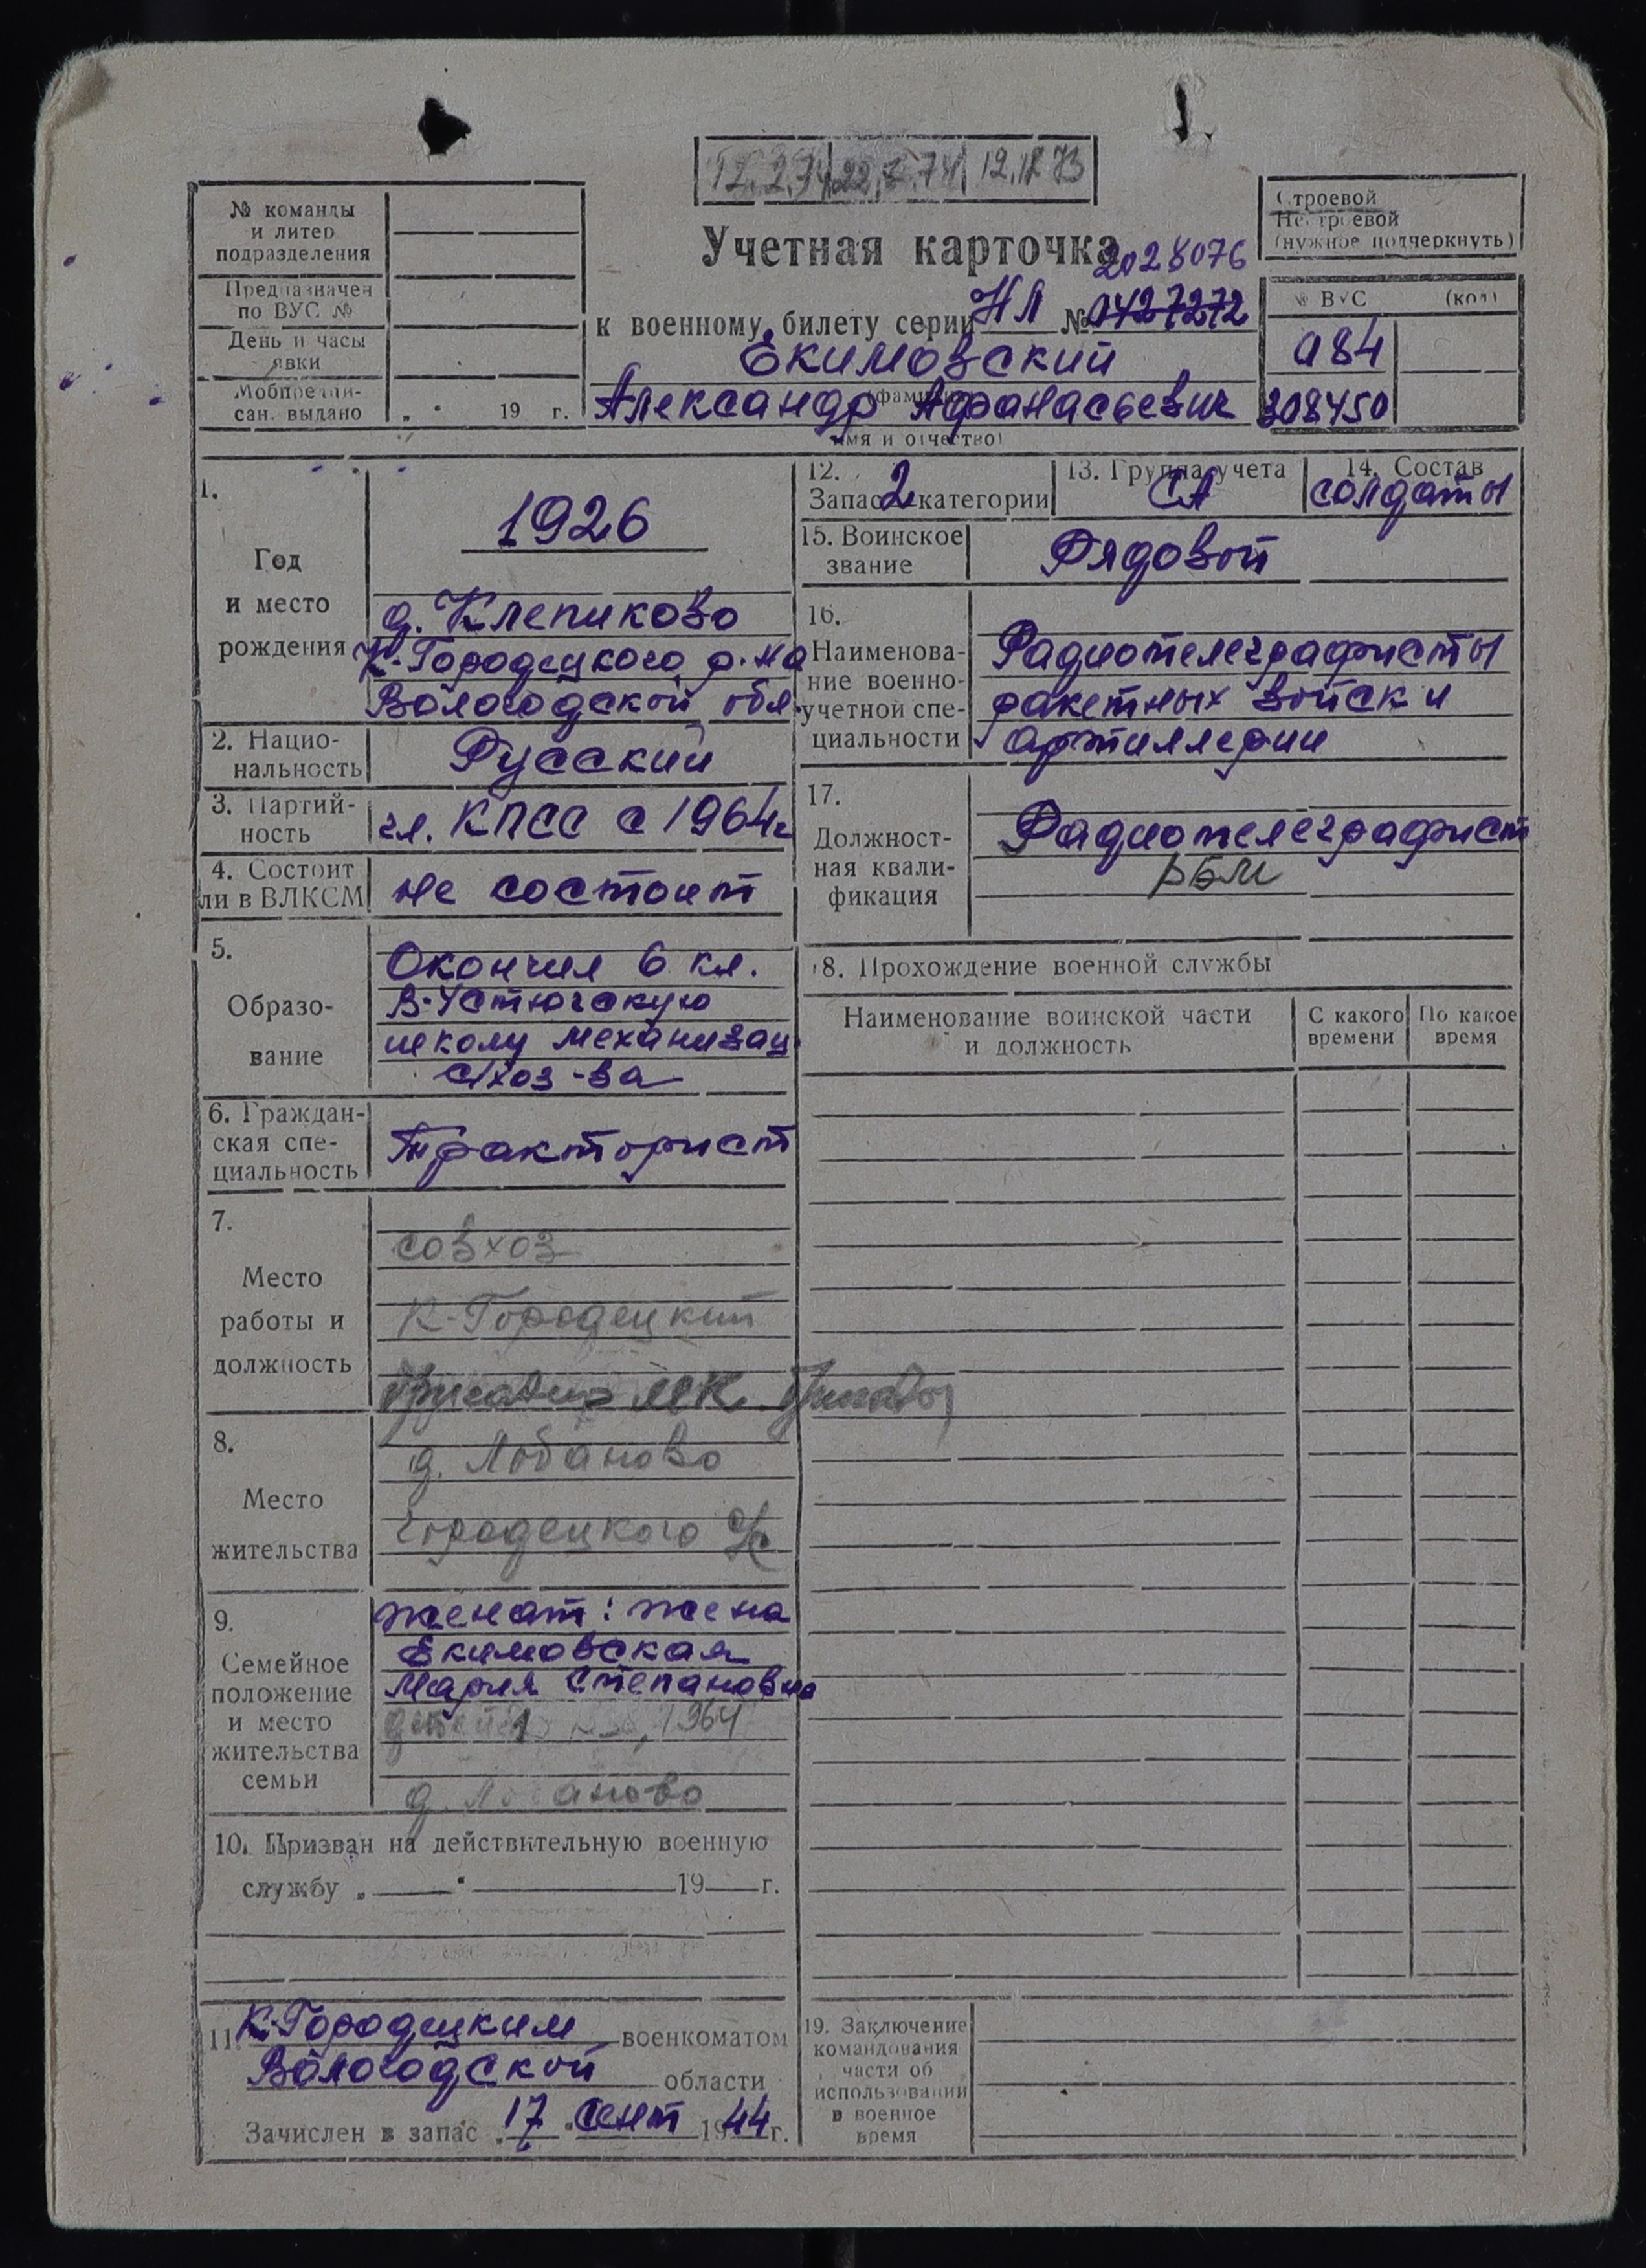 12.2.74 22.2.74 12.12.73
№ команды
и литер
подразделения
Предназначен
по ВУС №
День и часы
явки
Мобпредпи-
сан. выдано
„ “ 19 г.
Учетная карточка
2028076
к военному билету серии НЛ № 0427272
Екимовский
(фамилия)
Александр Афанасьевич
имя и отчество)
Строевой
Нестроевой
(нужное подчеркнуть)
№ ВУС (код)
а84
308450
1.
Год
и место
рождения
1926
д. Клепиково
К-Городецкого р-на
Вологодской обл.
2. Нацио-
нальность
Русский
3. Партий-
ность
чл. КПСС с 1964г
4. Состоит
ли в ВЛКСМ
не состоит
5.
Образо-
вание
Окончил 6 кл.
В-Устюгскую
школу механизац.
с/хоз-ва
6. Граждан-
ская спе-
циальность
Тракторист
7.
Место
работы и
должность
совхоз
К-Городецкий
бригадир
8.
Место
жительства
д. Лобаново
Городецкого с/с
9.
Семейное
положение
и место
жительства
семьи
женат: жена
Екимовская
Мария Степановна
1964
д. Лобаново
10. Призван на действительную военную
службу „ “ 19 г.
11. К-Городецким военкоматом
Вологодской области
Зачислен в запас „17“ сент 1944 г.
12.
Запас 2 категории
13. Группа учета
СА
14. Состав
солдаты
15. Воинское
звание
Рядовой
16.
Наименова-
ние военно-
учетной спе-
циальности
Радиотелеграфисты
ракетных войск и
артиллерии
17.
Должност-
ная квали-
фикация
Радиотелеграфист
РБМ
18. Прохождение военной службы
Наименование воинской части
и должность
С какого
времени
По какое
время
19. Заключение
командования
части об
использовании
в военное
время